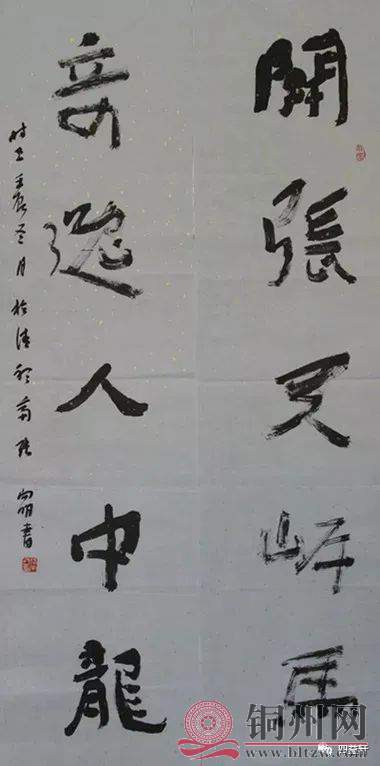 開張天岸馬
奇逸人中龍
壬辰 月於清 向明書
铜州网
www.bltzw.com